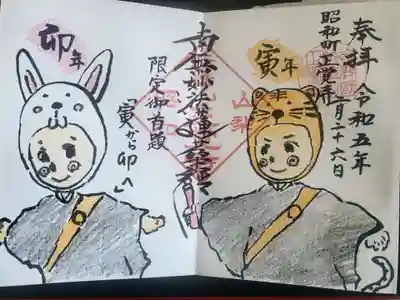 奉拝 令和五年
一月二十六日
昭和町正覚寺
寅年
山梨
南無妙法蓮華経
限定御首題
「寅から卯へ」
卯年